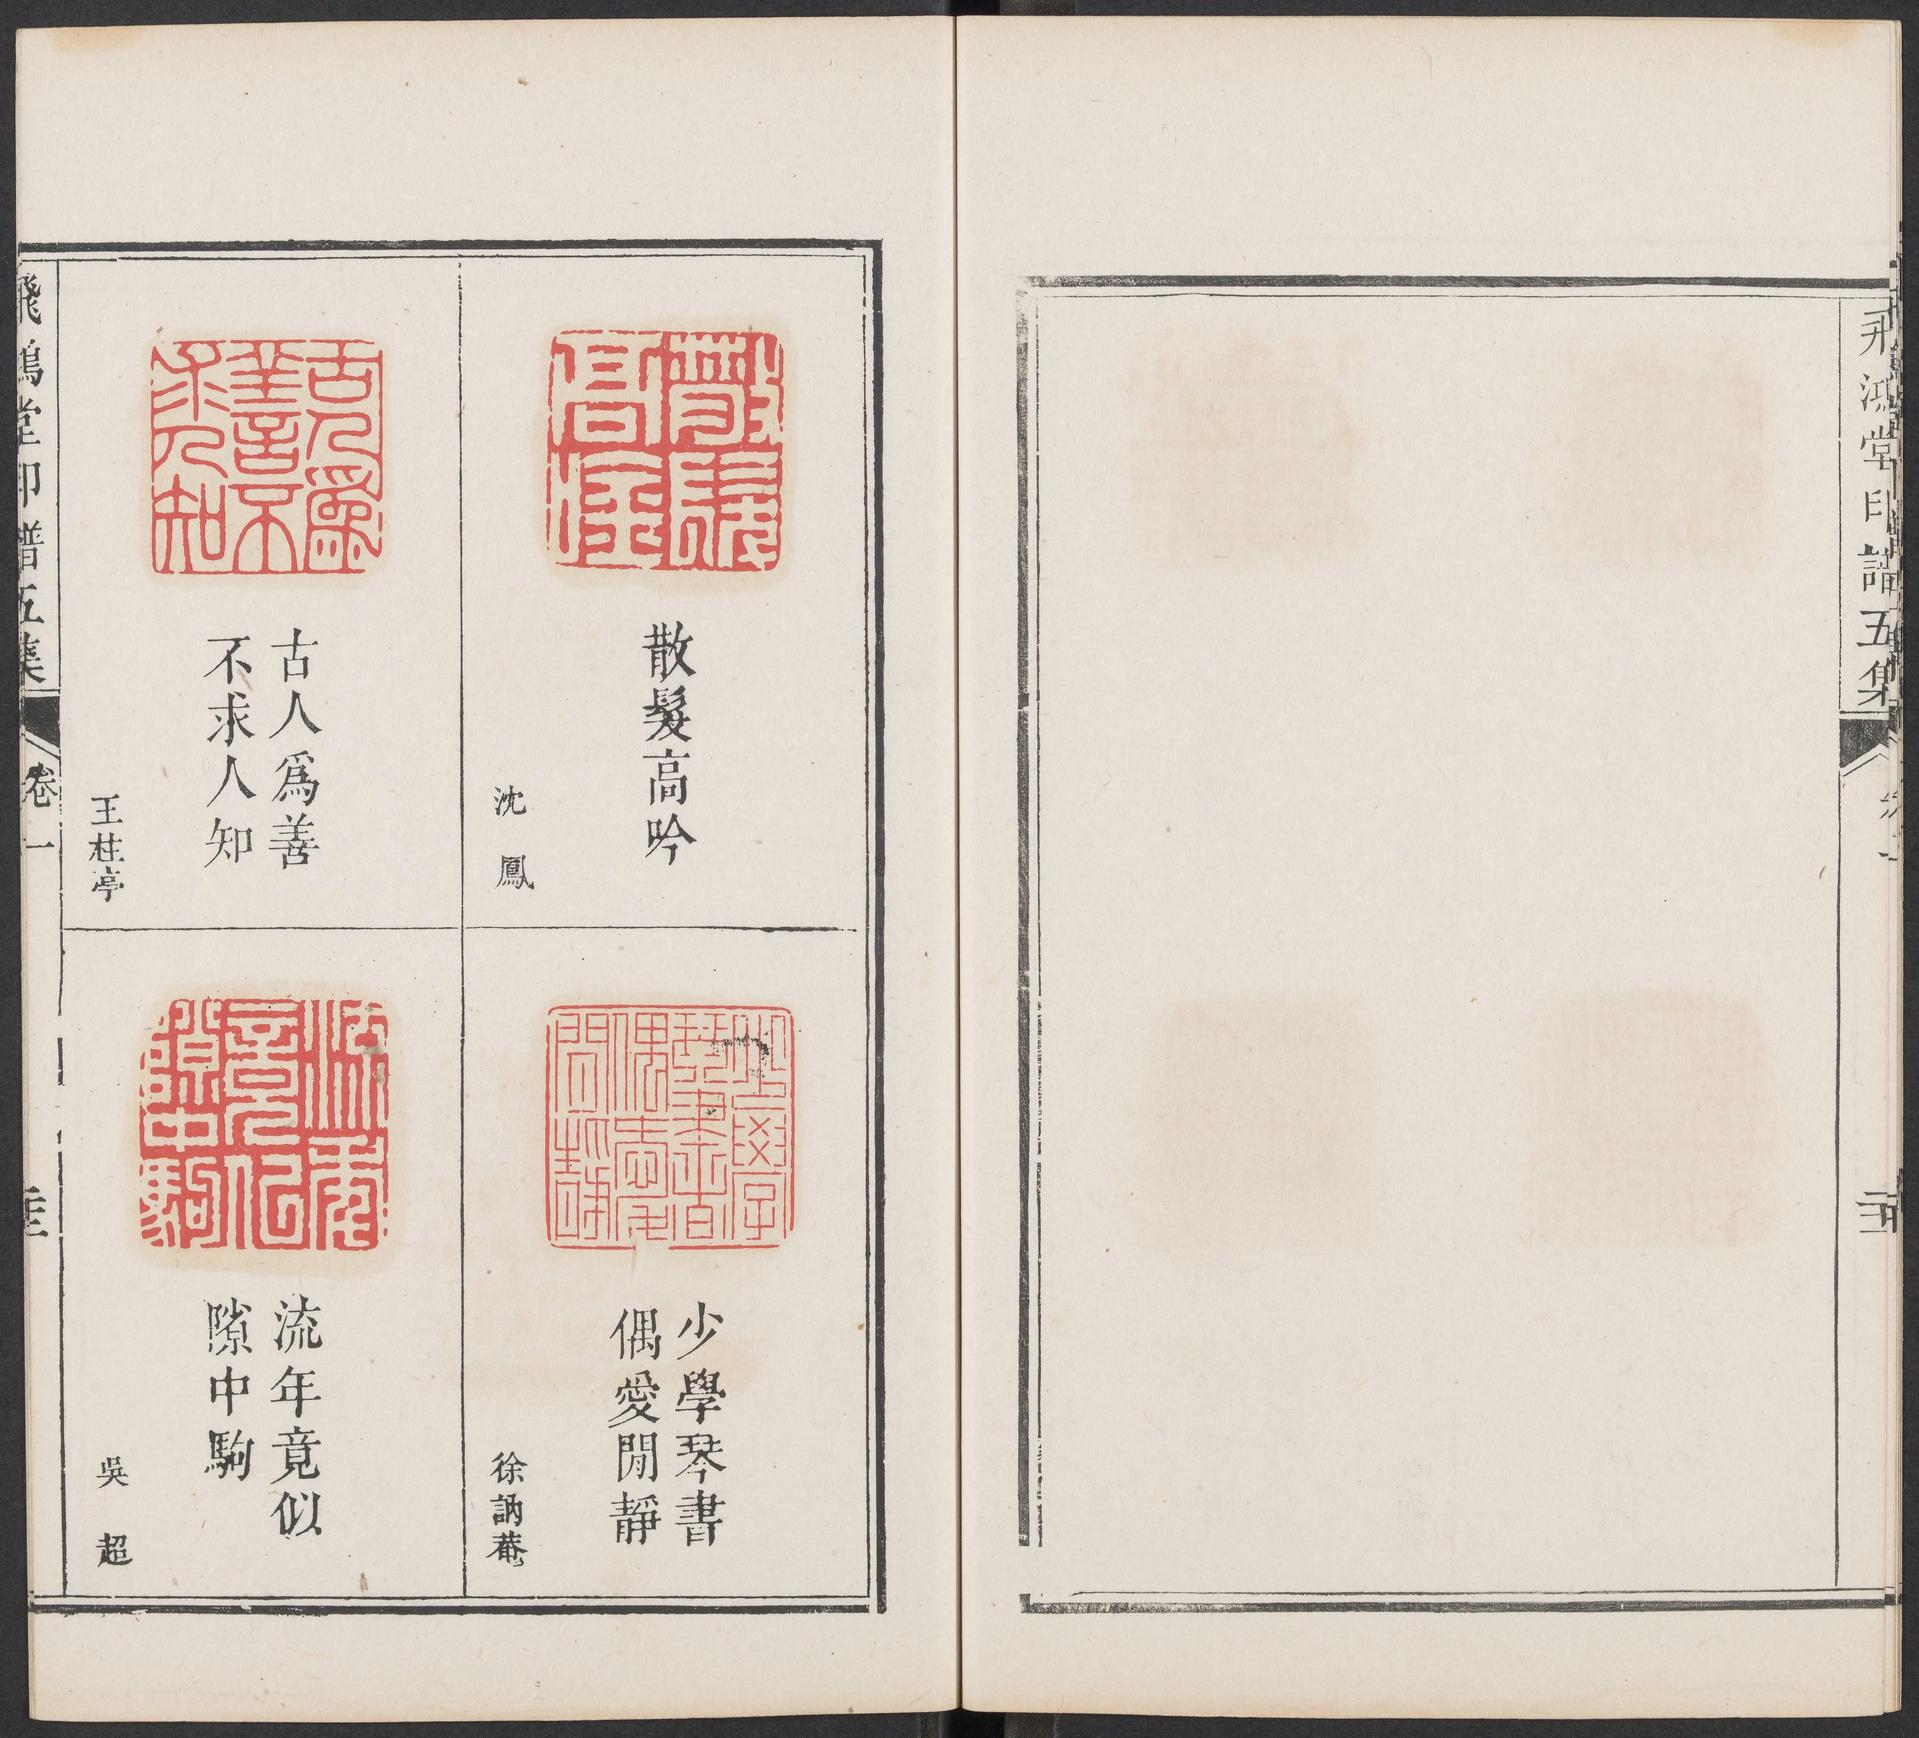 飛鴻堂印譜五集
卷一
散髮高吟
沈鳳
少學琴書
偶愛閒靜
徐訥菴
古人為善
不求人知
王桂亭
流年竟似
隙中駒
吳超
飛鴻堂印譜五集
卷一